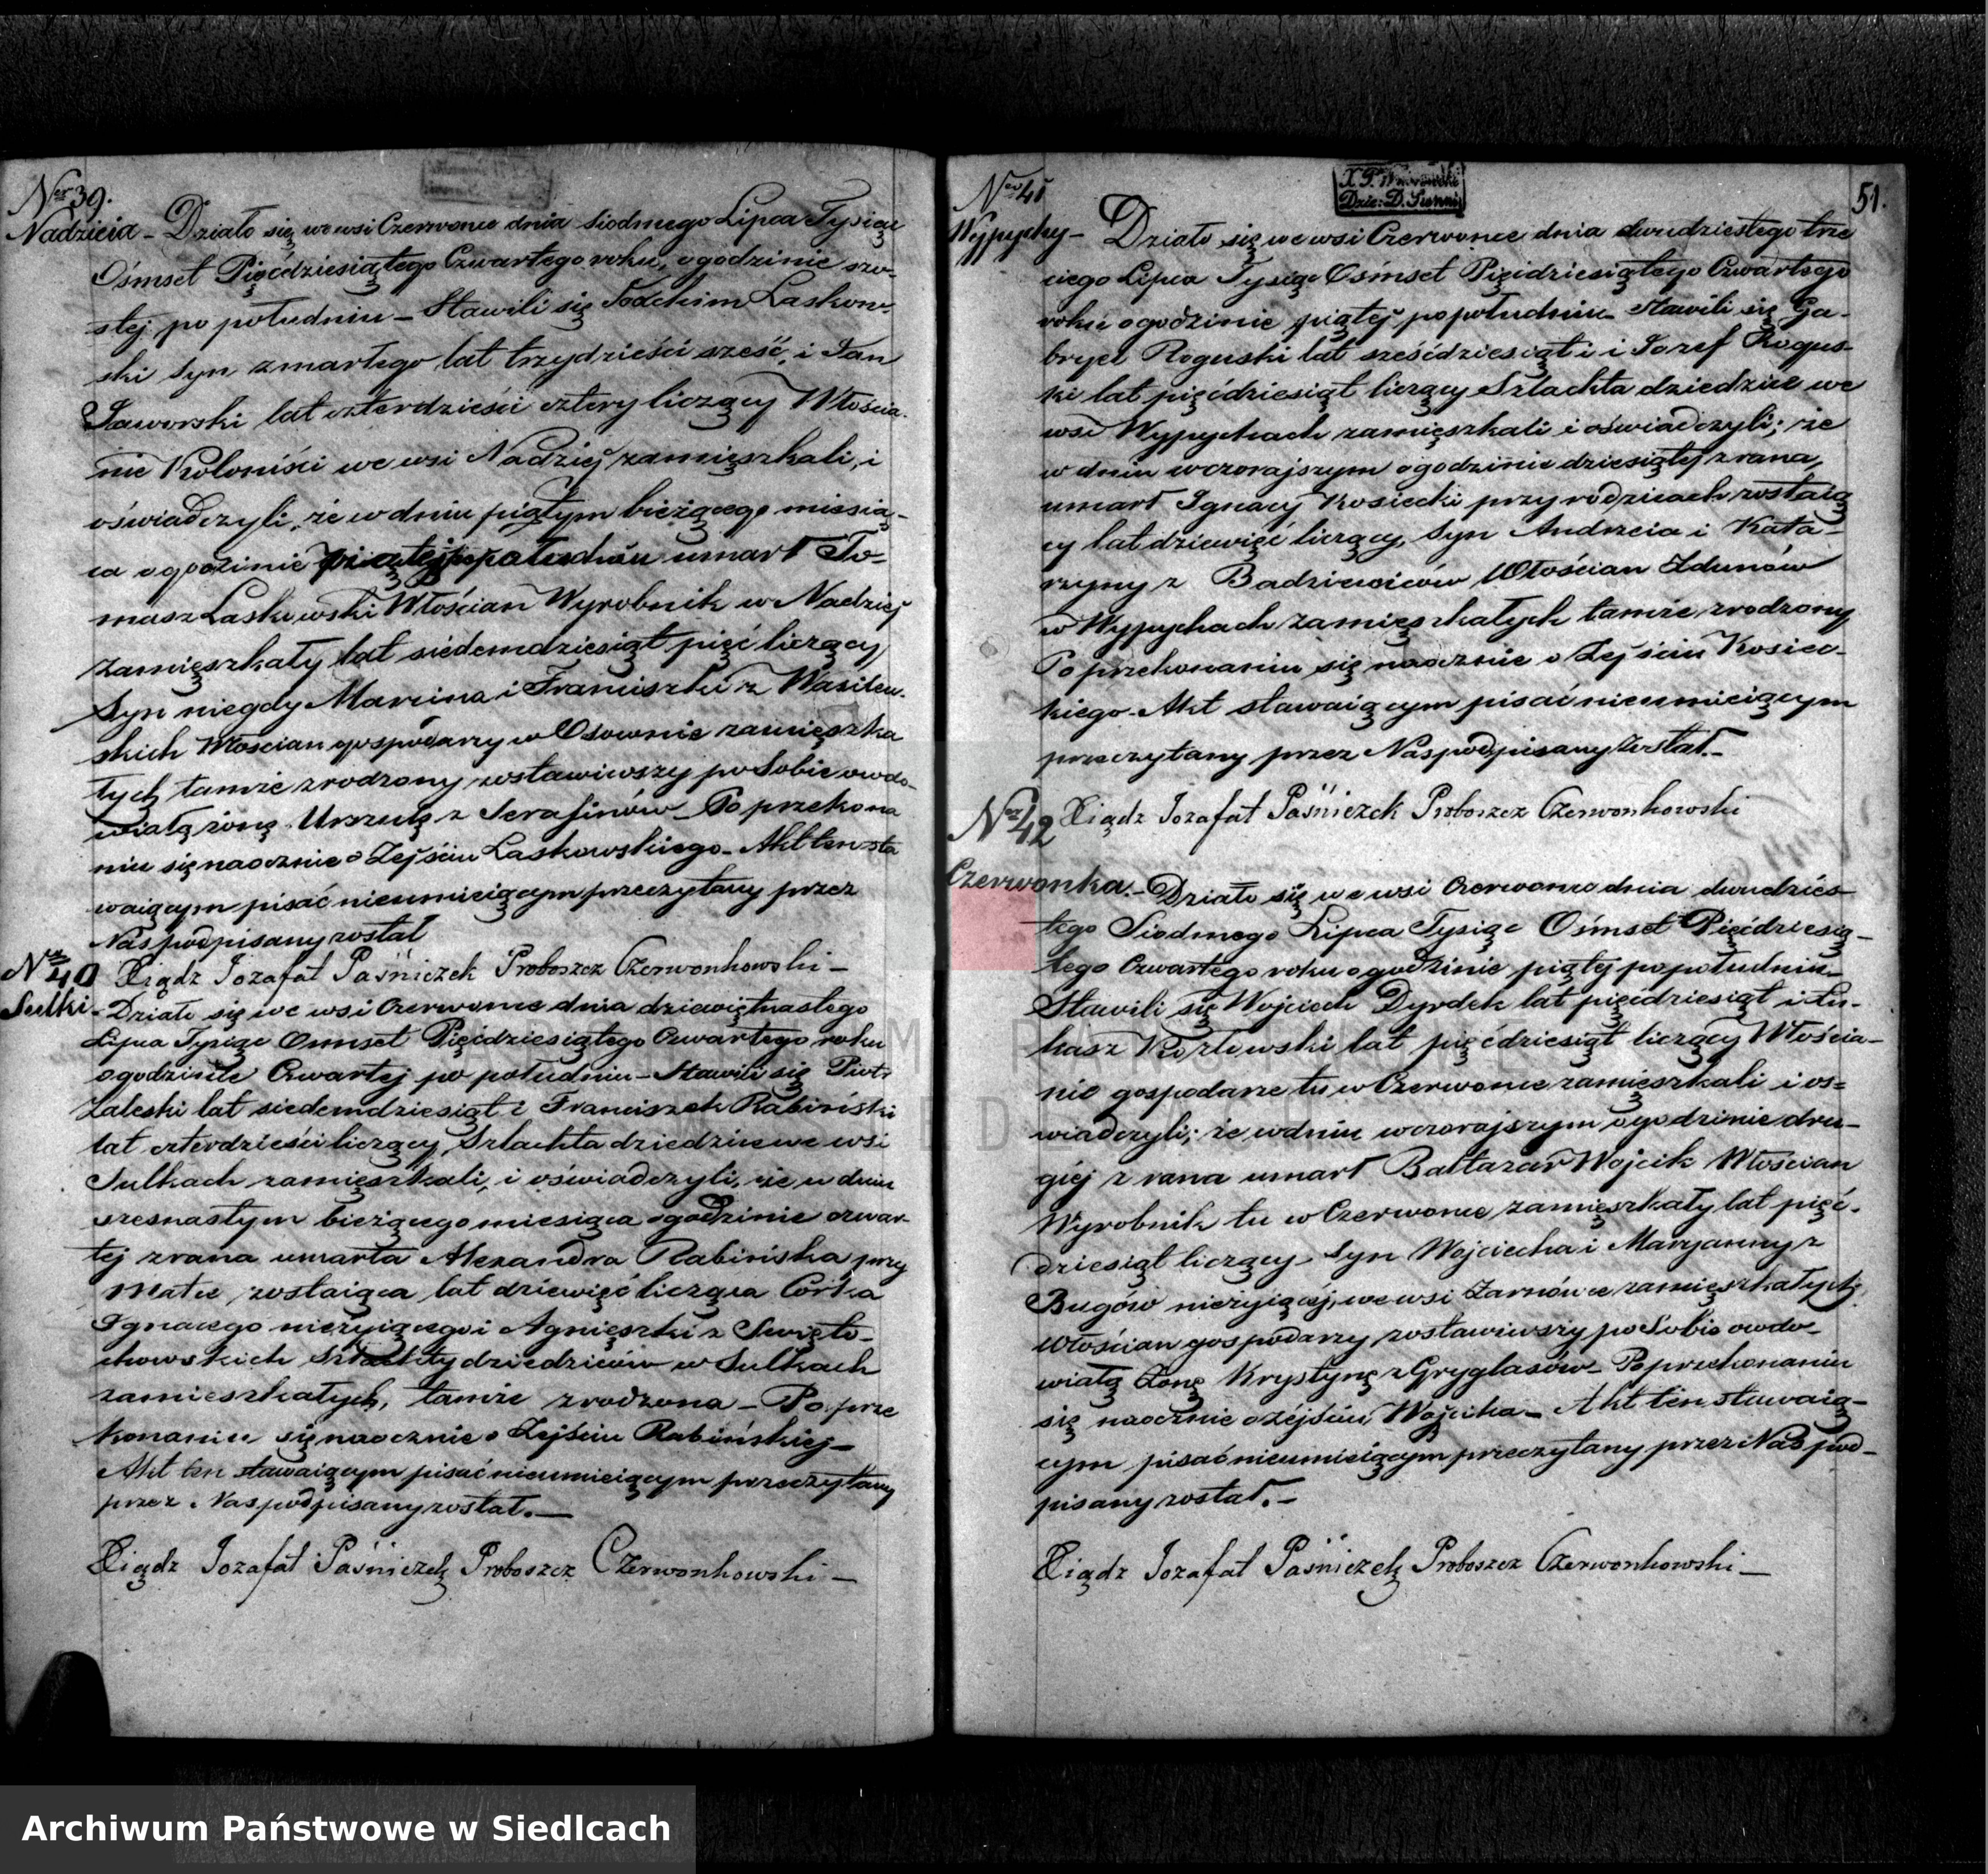 Ner 39.
Nadzieia - Działo się we wsi Czerwonce dnia siodmego Lipca Tysiąc
Ośmset Pięćdziesiątego Czwartego roku, o godzinie szo-
stej po południu - Stawili się Joachim Laskow-
ski syn zmarłego lat trzydzieści sześć, i Jan
Jaworski lat czterdzieści cztery liczący Włościa-
nie Koloniści we wsi Nadziej zamięszkali, i
oświadczyli, że w dniu piątym bieżącego miesią-
ca o godzinie piątej po południu umarł To-
masz Laskowski Włościan Wyrobnik w Nadziej
zamięszkały lat siedemdziesiąt pięć liczący,
Syn niegdy Marcina i Franciszki z Wasilew-
skich Włoscian gospodarzy w Osownie zamięszka
łych tamże zrodzony zostawiwszy po Sobie owdo-
wiałą żonę Urszulę z Serafinów - Po przekona
niu się naocznie o Zejściu Laskowskiego - Akt ten sta
waiącym pisać nieumieiącym przeczytany przez
Nas podpisany został
Xiądz Jozafat Paśniczek Proboszcz Czerwonkowski -
Ner 40
Sulki - Działo się we wsi Czerwonce dnia dziewiętnastego
Lipca Tysiąc Ośmset Pięćdziesiątego Czwartego roku
o godzinie Czwartej po południu - Stawili się Piotr
Zaleski lat siedemdziesiąt i Franciszek Rabiński
lat czterdzieści liczący, Szlachta dziedzice we wsi
Sulkach zamięszkali, i oświadczyli, że w dniu
szesnastym bieżącego miesiąca o godzinie czwar-
tej z rana umarła Alexandra Rabińska przy
Matce zostaiąca lat dziewięć licząca Córka
Ignacego nieżyiącego i Agnieszki z Święto-
chowskich Szlachty dziedziców w Sulkach
zamieszkałych, tamże zrodzona - Po prze
konaniu się naocznie o Zejściu Rabińskiej -
Akt ten stawaiącym pisać nieumieiącym przeczytany
przez Nas podpisany został. -
Xiądz Jozafat Paśniczek Proboszcz Czerwonkowski -
51.
Ner 41
Wypychy - Działo się we wsi Czerwonce dnia dwudziestego trze
ciego Lipca Tysiąc Ośmset Pięćdziesiątego Czwartego
roku o godzinie piątej po południu Stawili się Ga-
bryel Roguski lat sześćdziesiąt i i Jozef Rogus-
ki lat pięćdziesiąt liczący Szlachta dziedzice we
wsi Wypychach zamięszkali i oświadczyli; że
w dniu wczorajszym o godzinie dziesiątej z rana,
umarł Ignacy Kosiecki przy rodzicach zostaią
cy lat dziewięć liczący, Syn Andrzeia i Kata-
rzyny z Badziewiców Włościan Zdunów
w Wypychach zamięszkałych tamże zrodzony
Po przekonaniu się naocznie o Zejściu Kosiec-
kiego - Akt stawaiącym pisać nieumieiącym
przeczytany przez Nas podpisany został. -
Xiądz Jozafat Paśniczek Proboszcz Czerwonkowski
Ner 42
Czerwonka. - Działo się we wsi Czerwonce dnia dwudzies-
tego Siodmego Lipca Tysiąc Ośmset Pięćdziesią-
tego Czwartego roku o godzinie piątej po południu -
Stawili się Wojciech Dyrdek lat pięćdziesiąt i Łu-
kasz Kozłowski lat pięćdziesiąt liczący Włościa-
nie gospodarze tu w Czerwonce zamięszkali i oś=
wiadczyli; że w dniu wczorajszym o godzinie dru-
giéj z rana umarł Baltazar Wojcik Włościan
Wyrobnik tu w Czerwonce zamięszkały lat pięć-
dziesiąt liczący - Syn Wojciecha i Maryanny z
Bugów nieżyiącéj, we wsi Zarnówce zamięszkałych,
Włościan gospodarzy zostawiwszy po Sobie owdo-
wiałą Zonę Krystynę z Gryglasów - Po przekonaniu
się naocznie o zéjściu Wojcika - Akt ten stawaią-
cym pisać nieumieiącym przeczytany przez Nas pod-
pisany został. -
Xiądz Jozafat Paśniczek Proboszcz Czerwonkowski -
Archiwum Państwowe w Siedlcach